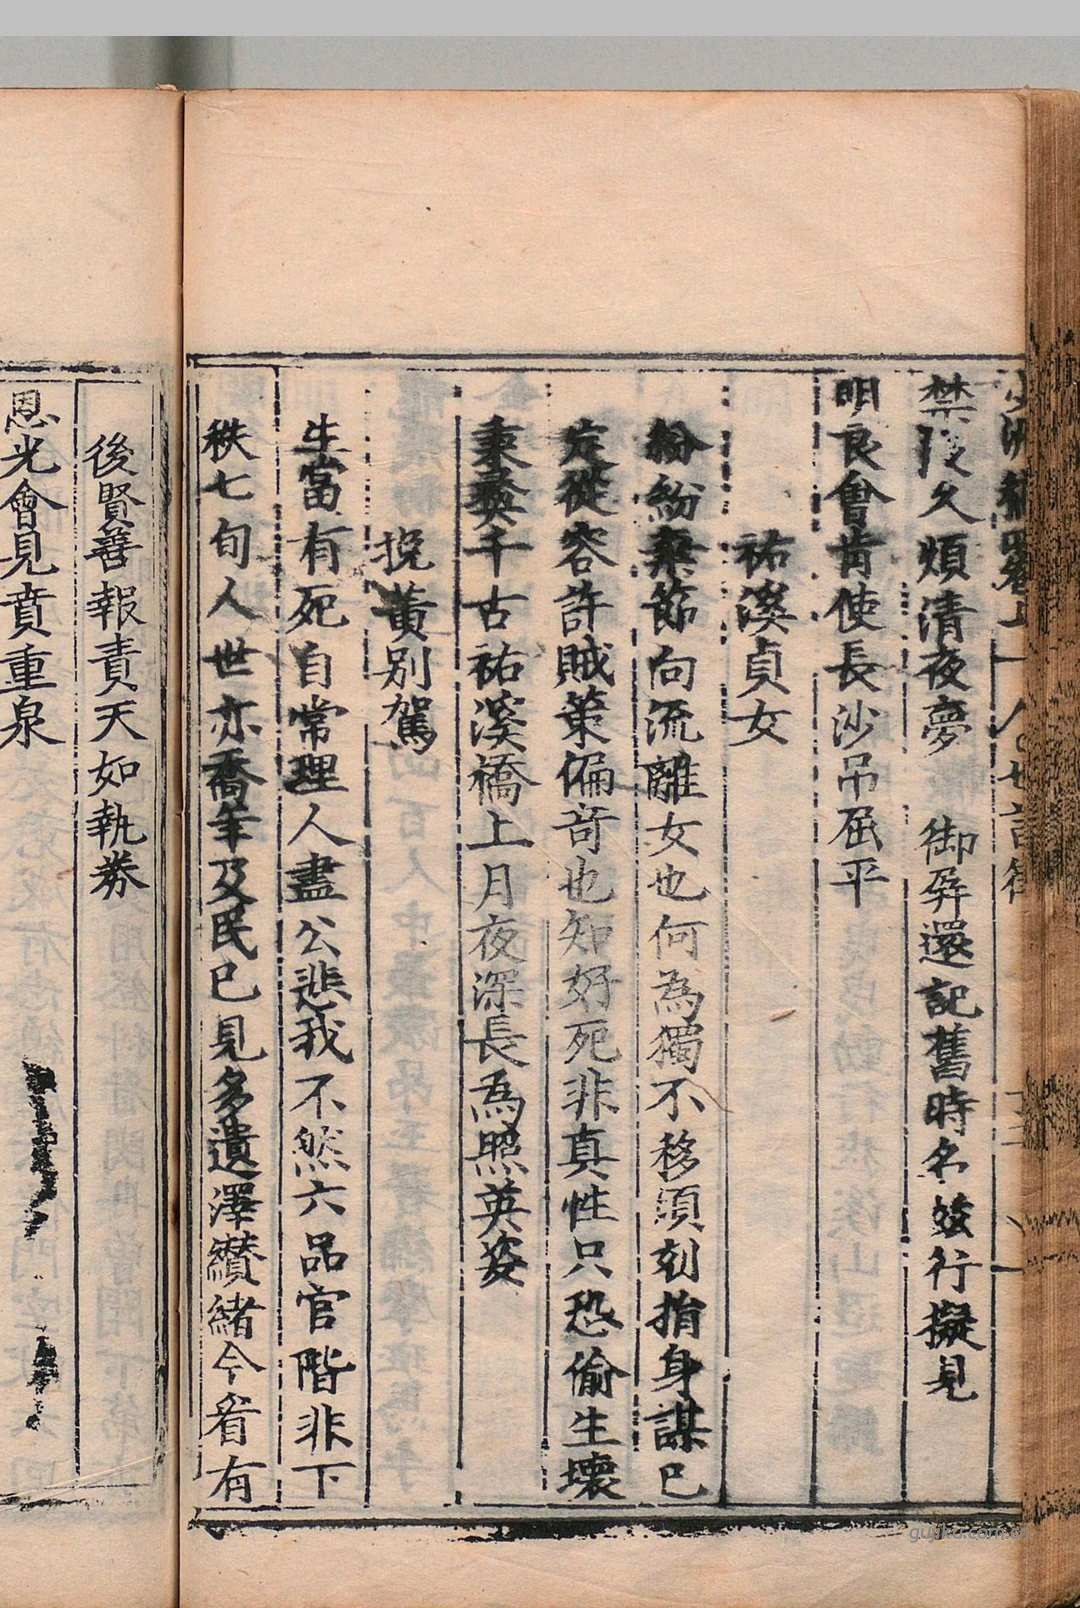 禁　久煩清夜夢　御屏還記舊時名　行擬見
明良會肯使長沙吊屈平
祐溪貞女
紛紛棄節向流離女也何為獨不移頃刻捐身謀已
定從容許賊策偏奇也知好死非真性只恐偷生壞
秉彝千古祐溪橋上月夜深長為照英姿
挽黃別駕
生當有死自常理人盡公悲我不然六品官階非下
秩七旬人世亦喬年及民已見多遺澤纘緒今看有
後賢善報責天如執券
恩光會見賁重泉